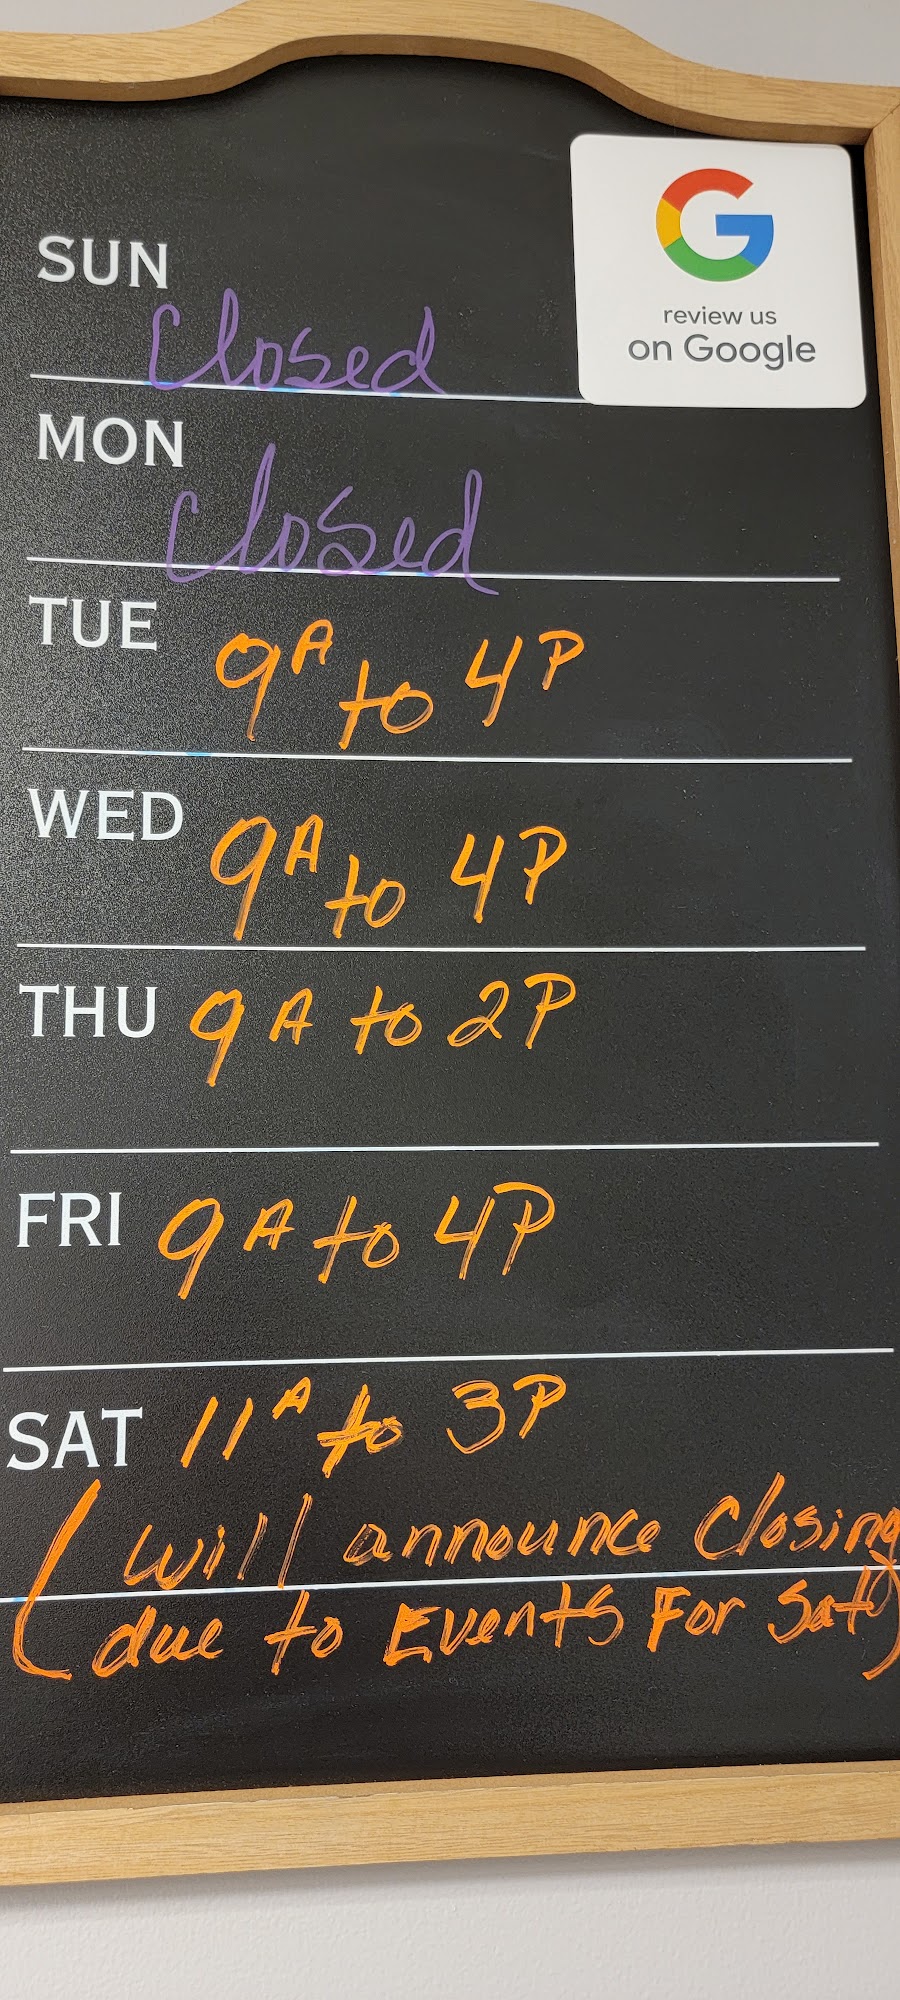 SUN
Closed
review us
on Google
MON
Closed
TUE
9A to 4P
WED
9A to 4P
THU 9A to 2P
FRI 9A to 4P
SAT 11A to 3P
(will announce Closing
due to Events For Sat)